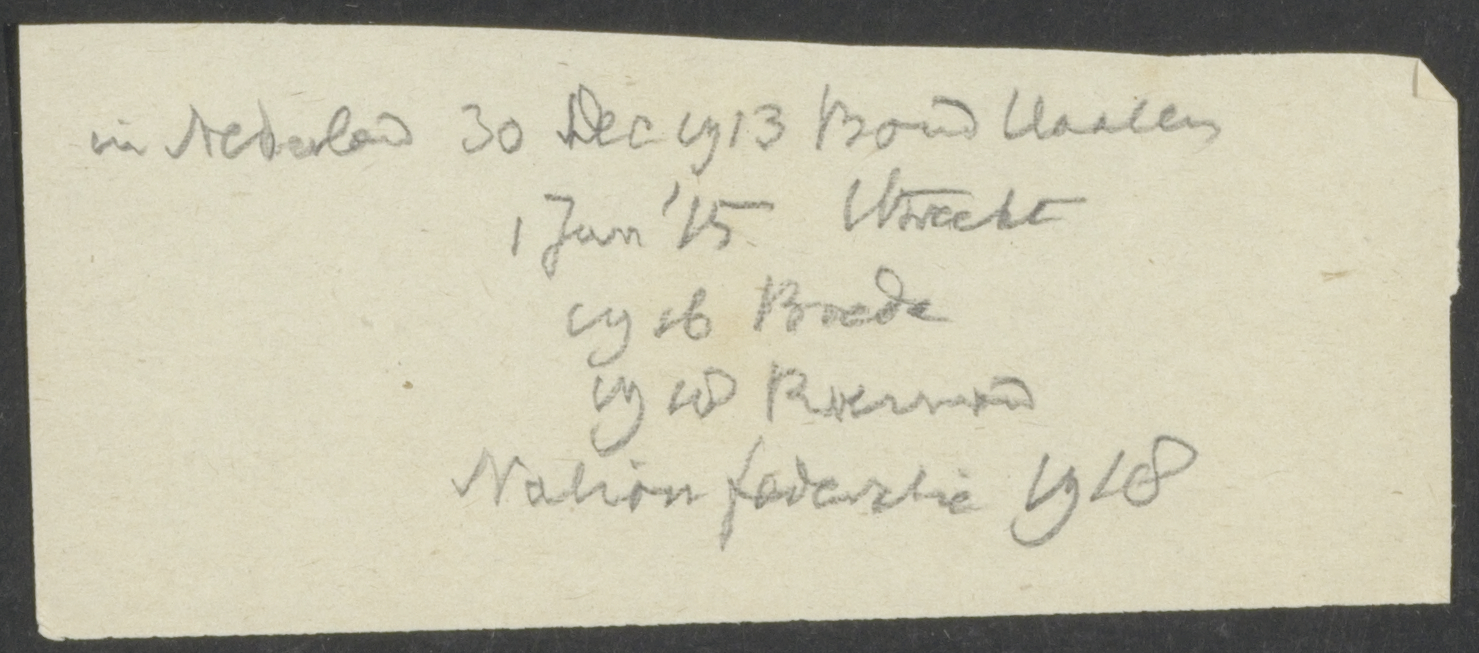 in Nederland 30 Dec 1913 Bond Haarlem
1 Jan '15 Utrecht
1916 Breda
1918 Roermond
Nation federatie 1918